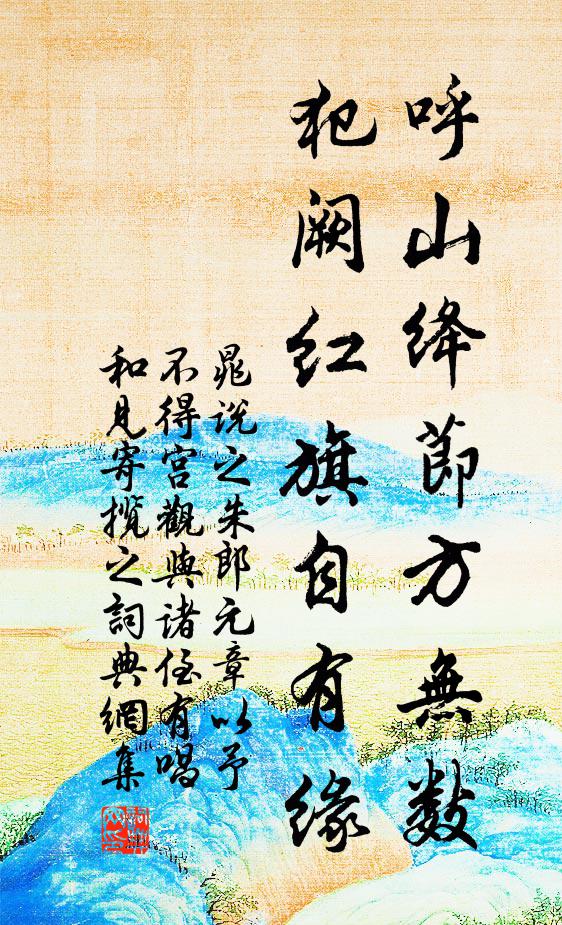 呼山絳節方無數
犯闕紅旗自有緣
晁說之朱郎元章以予
不得宮觀與諸侄有唱
和見寄攬之詞典網集